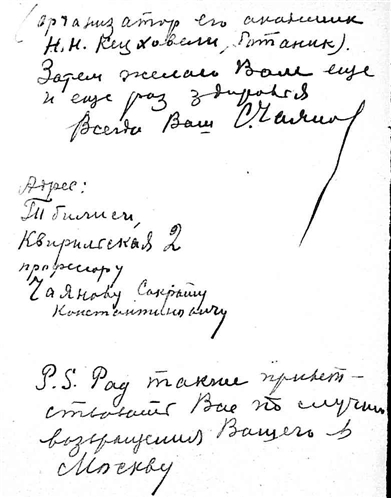 (организатор его академик
Н.Н. Кецховели, ботаник).
Затем желаю Вам еще
и еще раз здоровья
Всегда Ваш С. Чаянов
Адрес:
Тбилиси,
Квирильская 2
профессору
Чаянову Сократу
Константиновичу
P.S. Рад также привет-
ствовать Вас по случаю
возвращения Вашего в
Москву